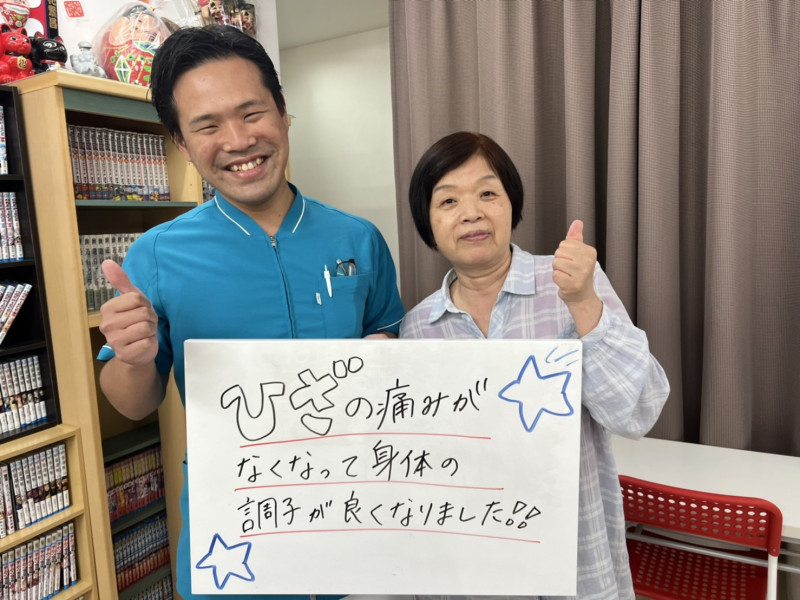 ひざの痛みが
なくなって身体の
調子が良くなりました!!